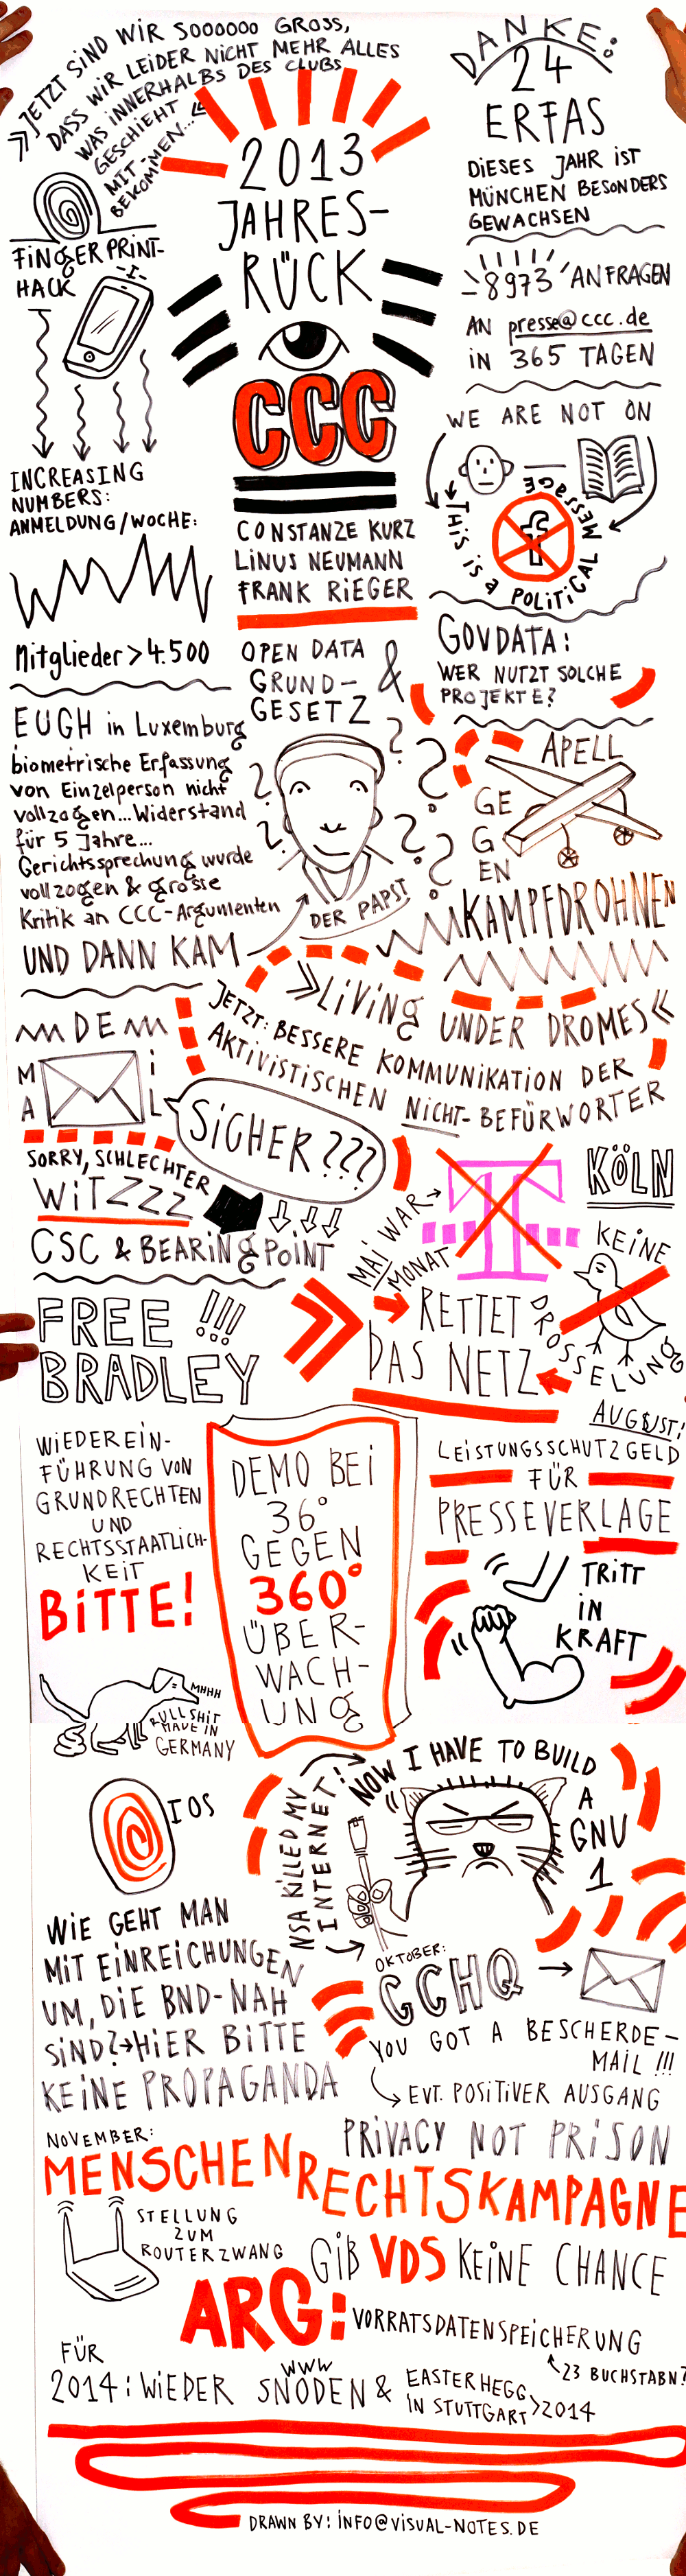 »JETZT SIND WIR SOOOOOO GROSS,
DASS WIR LEIDER NICHT MEHR ALLES
WAS INNERHALBS DES CLUBS
GESCHIEHT
MIT-
BEKOMMEN...«
FINGERPRINT-
HACK
INCREASING
NUMBERS:
ANMELDUNG/WOCHE:
Mitglieder > 4.500
2013
JAHRES-
RÜCK
CCC
CONSTANZE KURZ
LINUS NEUMANN
FRANK RIEGER
DANKE:
24
ERFAS
DIESES JAHR IST
MÜNCHEN BESONDERS
GEWACHSEN
8973 ANFRAGEN
AN presse@ccc.de
IN 365 TAGEN
WE ARE NOT ON
f
THIS IS A POLITICAL MESSAGE
OPEN DATA
GRUND- &
GESETZ
GOVDATA:
WER NUTZT SOLCHE
PROJEKTE?
EUGH in Luxemburg
biometrische Erfassung
von Einzelperson nicht
vollzogen...Widerstand
für 5 Jahre...
Gerichtssprechung wurde
vollzogen & grosse
Kritik an CCC-Argumenten
UND DANN KAM
DER PAPST
? ? ? ? ? ? ?
APELL
GE
G
EN
KAMPFDROHNEN
»LIVING UNDER DROMES«
JETZT: BESSERE KOMMUNIKATION DER
AKTIVISTISCHEN NICHT-BEFÜRWORTER
DE
MAIL
SICHER???
SORRY, SCHLECHTER
WITZZZ
CSC & BEARINGPOINT
MAI WAR
MONAT
T
KÖLN
KEINE
DROSSELUNG
RETTET
DAS NETZ
FREE !!!
BRADLEY
AUGUST!
WIEDEREIN-
FÜHRUNG VON
GRUNDRECHTEN
UND
RECHTSSTAATLICH-
KEIT
BITTE!
DEMO BEI
36°
GEGEN
360°
ÜBER-
WACH-
UNG
LEISTUNGSSCHUTZGELD
FÜR
PRESSEVERLAGE
TRITT
IN
KRAFT
MHHH
BULLSHIT
MADE IN
GERMANY
IOS
NSA KILLED MY
INTERNET!
NOW I HAVE TO BUILD
A
GNU
1
WIE GEHT MAN
MIT EINREICHUNGEN
UM, DIE BND-NAH
SIND?→HIER BITTE
KEINE PROPAGANDA
OKTOBER:
GCHQ
YOU GOT A BESCHERDE-
MAIL !!!
EVT. POSITIVER AUSGANG
PRIVACY NOT PRISON
NOVEMBER:
MENSCHENRECHTSKAMPAGNE
STELLUNG
ZUM
ROUTERZWANG
GIB VDS KEINE CHANCE
ARG:
VORRATSDATENSPEICHERUNG
23 BUCHSTABN?
FÜR
2014: WIEDER SNODEN &
WWW
EASTERHEGG
IN STUTTGART > 2014
DRAWN BY: INFO@VISUAL-NOTES.DE